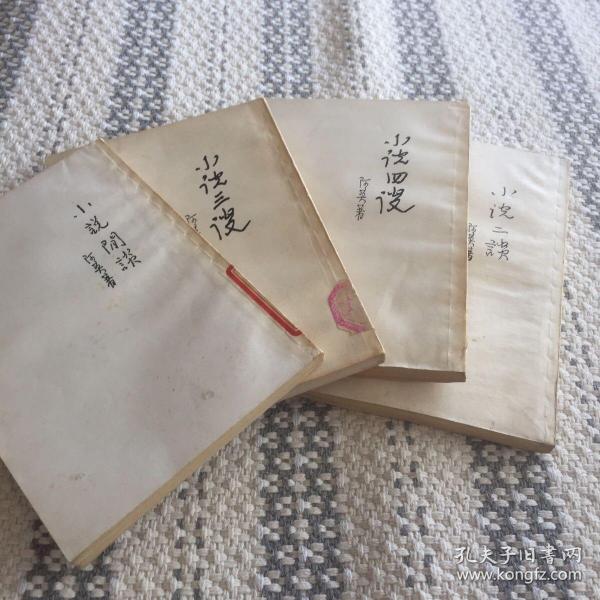 小說閒談
阿英著
小说三谈
阿英
小说四谈
阿英著
小说二談
阿英著
孔夫子旧書网
www.kongfz.com